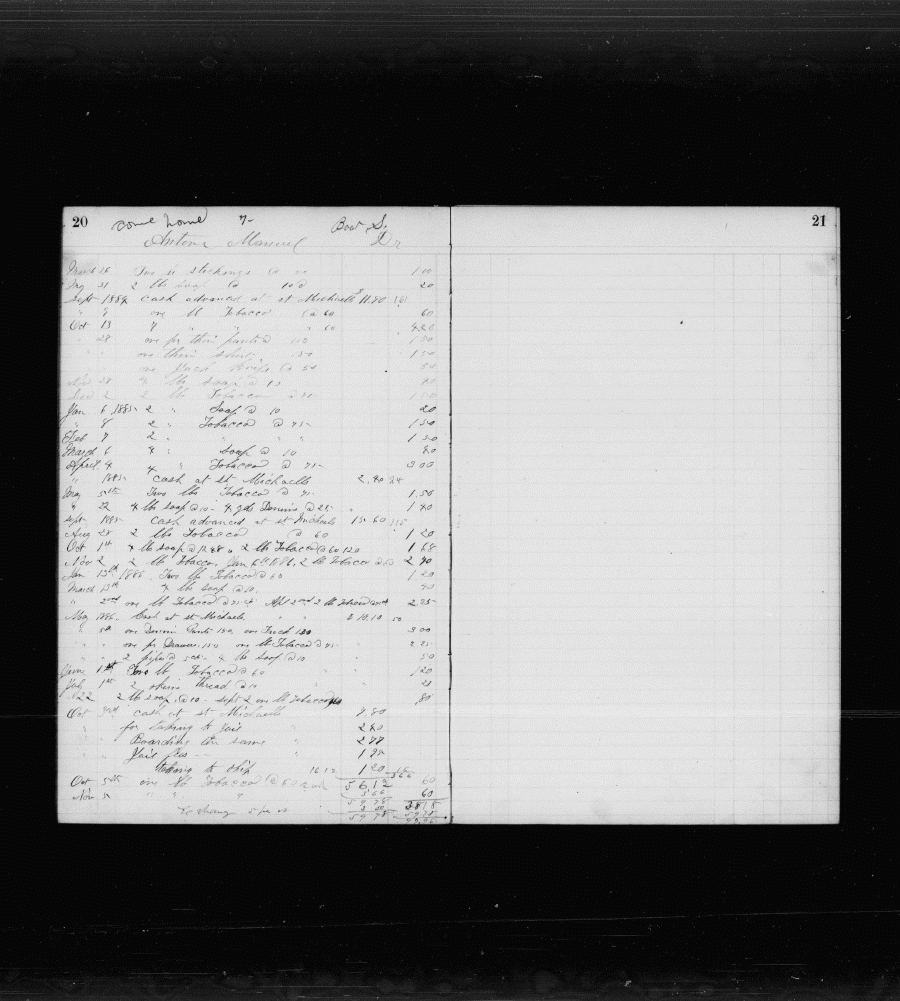 20
come home 7- Boat S.
Antone Manuel Dr
March 26 Two stockings 1 00
31 2 lbs soap @ 10 20
Sept 1884 cash advanced at st Michaels 11.80
" 9 one lb Tobacco @ 60 60
Oct 13 7 " " " 60 4 20
" 28 one pr thin pants 1 50
one thin shirt 150 1 50
one Jack Knife @ 50 50
28 4 lbs soap @ 10 40
2 2 lb Tobacco @ 75 1 50
Jan 6 1885 2 " Soap @ 10 20
" 8 2 " Tobacco @ 75 1 50
Feb 7 2 " " " 1 50
March 6 4 " soap @ 10 40
April 4 4 " Tobacco @ 75 3 00
" 1885 cash at st Michaels 2.40 24
May 5th Two lbs Tobacco @ 75 1.50
" 22 4 lb soap @ 10 4 yds Denims @ 25 1 40
Sept 1885 Cash advanced at st Michaels 15 60
Aug 28 2 lbs Tobacco @ 60 1 20
Oct 1st 4 lb soap @ 12 48 2 lb Tobacco @ 60 120 1 68
Nov 2 2 lb Tobacco, Jan 6th 1886, 2 lb Tobacco @ 60 2 40
Jan 13th 1886. Two lb Tobacco @ 60 1 20
March 13th 4 lb soap @ 10 40
" 2nd one lb Tobacco @ 75 Apl 2nd 2 lb Tobacco 2 25
May 1886. Cash at st Michaels " $ 10.10 50
" 5th one Denim Pants 180, one Frock 120 3 00
" " one pr Drawers 150 one lb Tobacco @ 75 2 25
" " 2 pipes @ 5cts 4 lb soap @ 10 50
June 1st Two lb Tobacco @ 60 1 20
July 1st 2 skeins thread @ 10 20
" 22 2 lb soap @ 10 Sept 2 one lb Tobacco 60 80
Oct 3rd cash at st Michaels 7.80
" for taking to Jail 2 40
" Boarding in same " 2 77
" Jail fees
taking to ship 16 12 1 20
Oct 5th one lb Tobacco @ 60 56 12 60
Nov 5 " " " " 60
Exchange 5 per ct
21